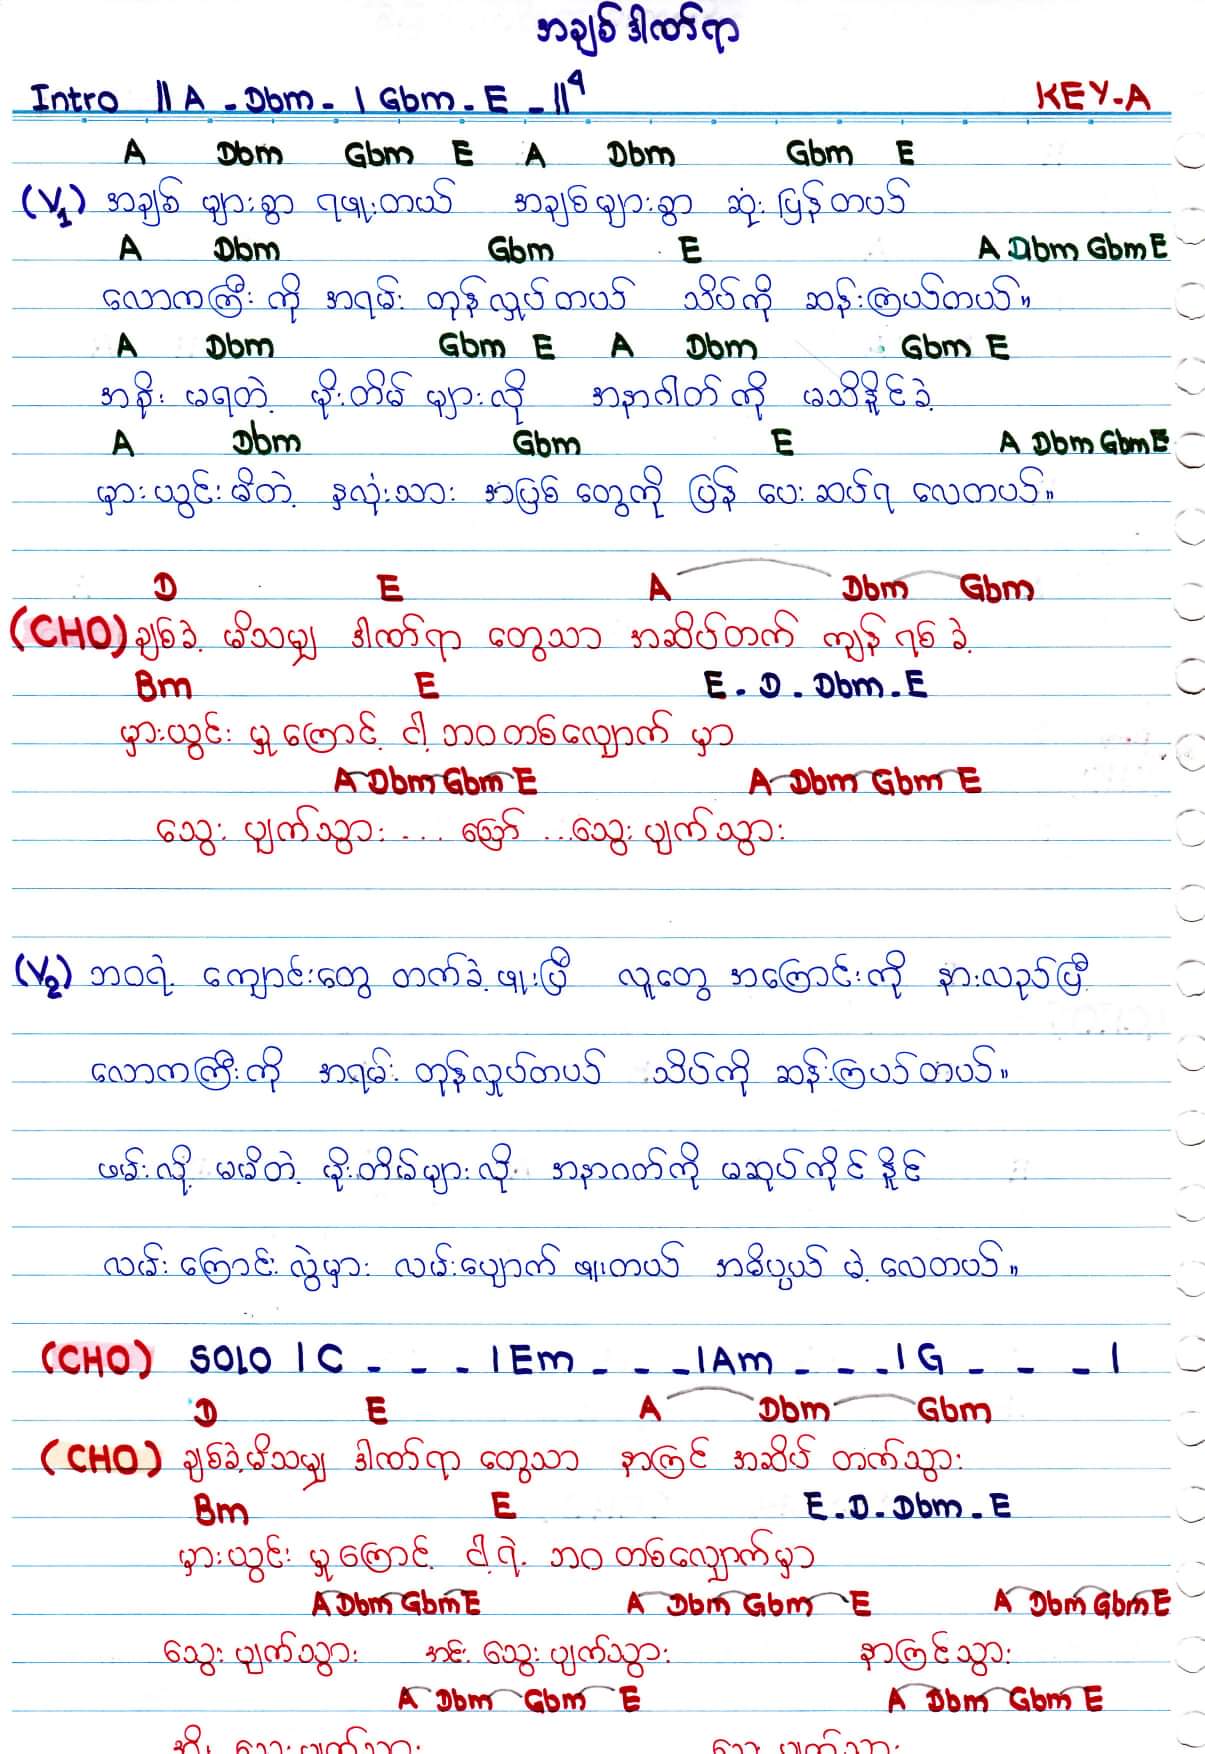 အချစ်ဒါဏ်ရာ
Intro || A - Dbm - | Gbm - E - ||4 KEY-A
A Dbm Gbm E A Dbm Gbm E
(V1) အချစ် များစွာ ရဖူးတယ် အချစ်များစွာ ဆုံး ပြန်တယ်
A Dbm Gbm E A Dbm Gbm E
လောကကြီး ကို အရမ်း တုန်လှုပ်တယ် သိပ်ကို ဆန်းကြယ်တယ်။
A Dbm Gbm E A Dbm Gbm E
အနိုး မရတဲ့ မိုးတိမ် များလို အနာဂါတ် ကို မသိနိူင်ခဲ့
A Dbm Gbm E A Dbm Gbm E
မှားယွင်းမိတဲ့ နှလုံးသား အပြစ် တွေကို ပြန် ပေးဆပ်ရ လေတယ်။
D E A Dbm Gbm
(CHO) ချစ်ခဲ့ မိသမျှ ဒါဏ်ရာ တွေသာ အဆိပ်တက် ကျန်ရစ်ခဲ့
Bm E E - D - Dbm - E
မှားယွင်း မှုကြောင့် ငါ့ဘဝတစ်လျှောက် မှာ
A Dbm Gbm E A Dbm Gbm E
သွေး ပျက်သွား ... သြော် ... သွေး ပျက်သွား
(V2) ဘဝရဲ့ ကျောင်းတွေ တက်ခဲ့ဖူးပြီ လူတွေ အကြောင်းကို နားလည်ပြီ
လောကကြီးကို အရမ်း တုန်လှုပ်တယ် သိပ်ကို ဆန်းကြယ်တယ်။
ဖမ်းလို့ မမိတဲ့ မိုးတိမ်များလို အနာဂတ်ကို မဆုပ်ကိုင်နိူင်
လမ်းကြောင်းလွဲမှား လမ်းပျောက် ဖူးတယ် အဓိပ္ပယ် မဲ့ လေတယ်။
(CHO) SOLO | C - - - | Em - - - | Am - - - | G - - - |
D E A Dbm Gbm
(CHO) ချစ်ခဲ့မိသမျှ ဒါဏ်ရာ တွေသာ နာကြင် အဆိပ် တက်သွား
Bm E E - D - Dbm - E
မှားယွင်း မှုကြောင့် ငါ့ရဲ့ ဘဝ တစ်လျှောက်မှာ
A Dbm Gbm E A Dbm Gbm E A Dbm Gbm E
သွေး ပျက်သွား အင်း သွေး ပျက်သွား နာကြင်သွား
A Dbm Gbm E A Dbm Gbm E
သွေး ပျက်သွား သွေး ပျက်သွား